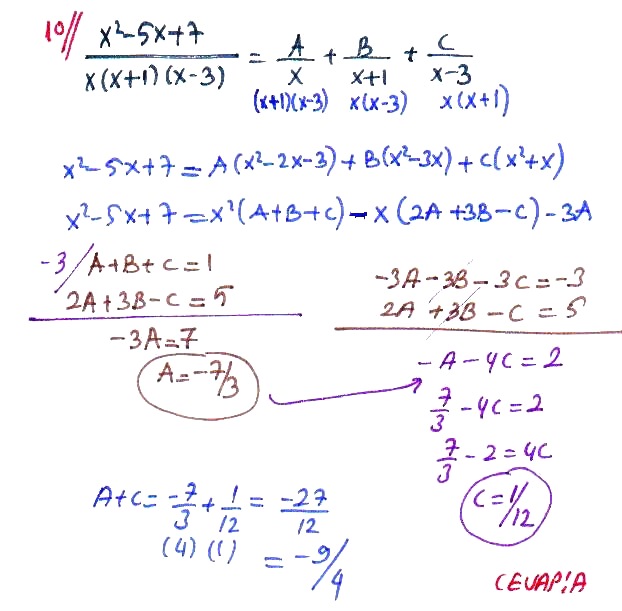 10// x²-5x+7 / x(x+1)(x-3) = A/x + B/x+1 + C/x-3
(x+1)(x-3) x(x-3) x(x+1)
x²-5x+7 = A(x²-2x-3)+B(x²-3x)+C(x²+x)
x²-5x+7 = x²(A+B+C)-x(2A+3B-C)-3A
-3/ A+B+C=1
2A+3B-C=5
-3A=7
A=-7/3
-3A-3B-3C=-3
2A+3B-C=5
-A-4C=2
7/3-4C=2
7/3-2=4C
C=1/12
A+C=-7/3+1/12=-27/12
(4) (1) =-9/4
CEVAP:A